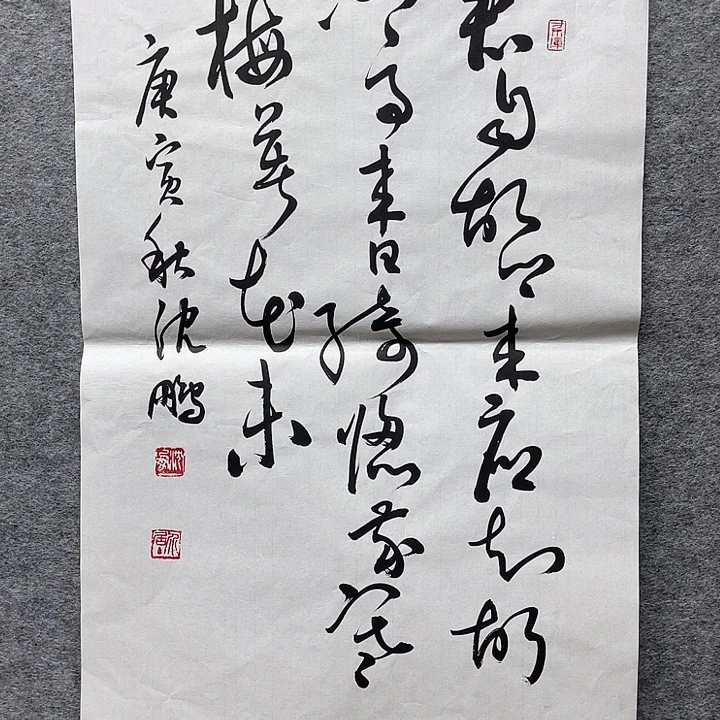 君自故乡来应知故
乡事来日绮窗前寒
梅著花未
庚寅秋沈鹏